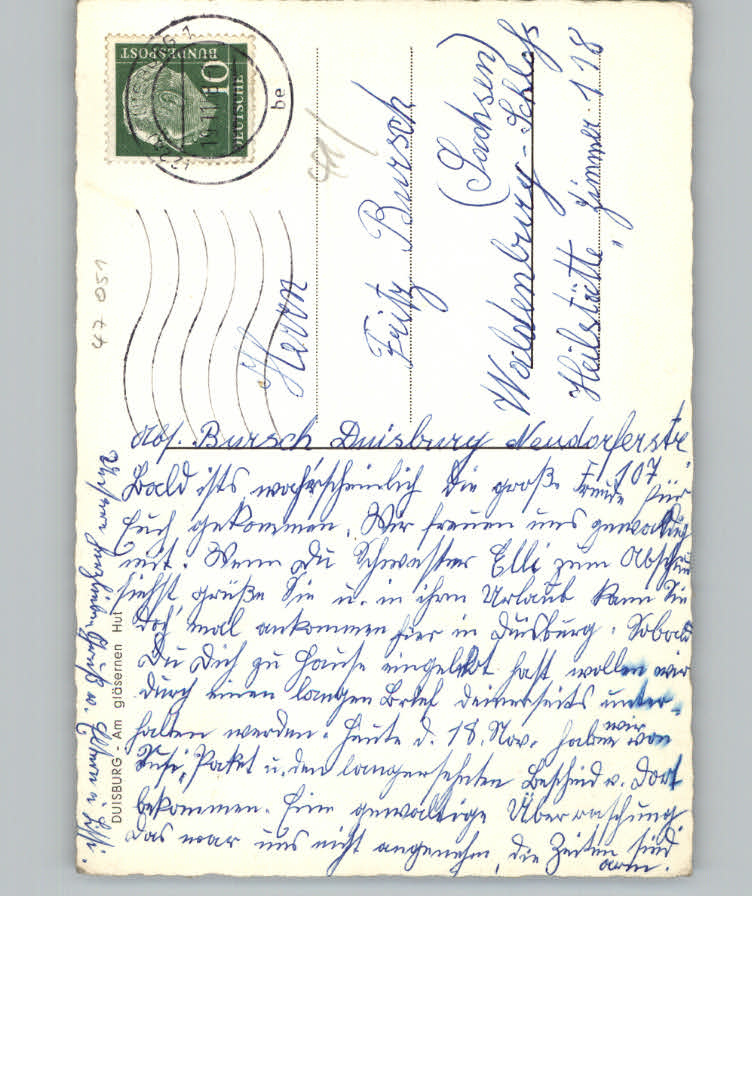 DEUTSCHE
BUNDESPOST
10
be
47 051
Herrn
Fritz Bursch
(Sachsen)
Waldenburg-Schloß
Heilstätte, Zimmer 118
Abs. Bursch Duisburg Neudorferstr
107
Bald ists wahrscheinlich die große Freude für
Euch gekommen. Wir freuen uns gewaltig
mit. Wenn Du Schwester Elli zum Abschied
siehst grüße Sie u. in ihrem Urlaub kann Sie
doch mal ankommen hier in Duisburg. Sobald
Du Dich zu Hause eingelebt hast wollen wir
durch einen langen Brief deinerseits unter-
halten werden. Heute d. 18. Nov. haben wir von
Paket u. den langersehnten Bescheid v. dort
bekommen. Eine gewaltige Überraschung
das war uns nicht angenehm, die Zeiten sind
arm.
herzlichen Gruß v.
DUISBURG - Am gläsernen Hut